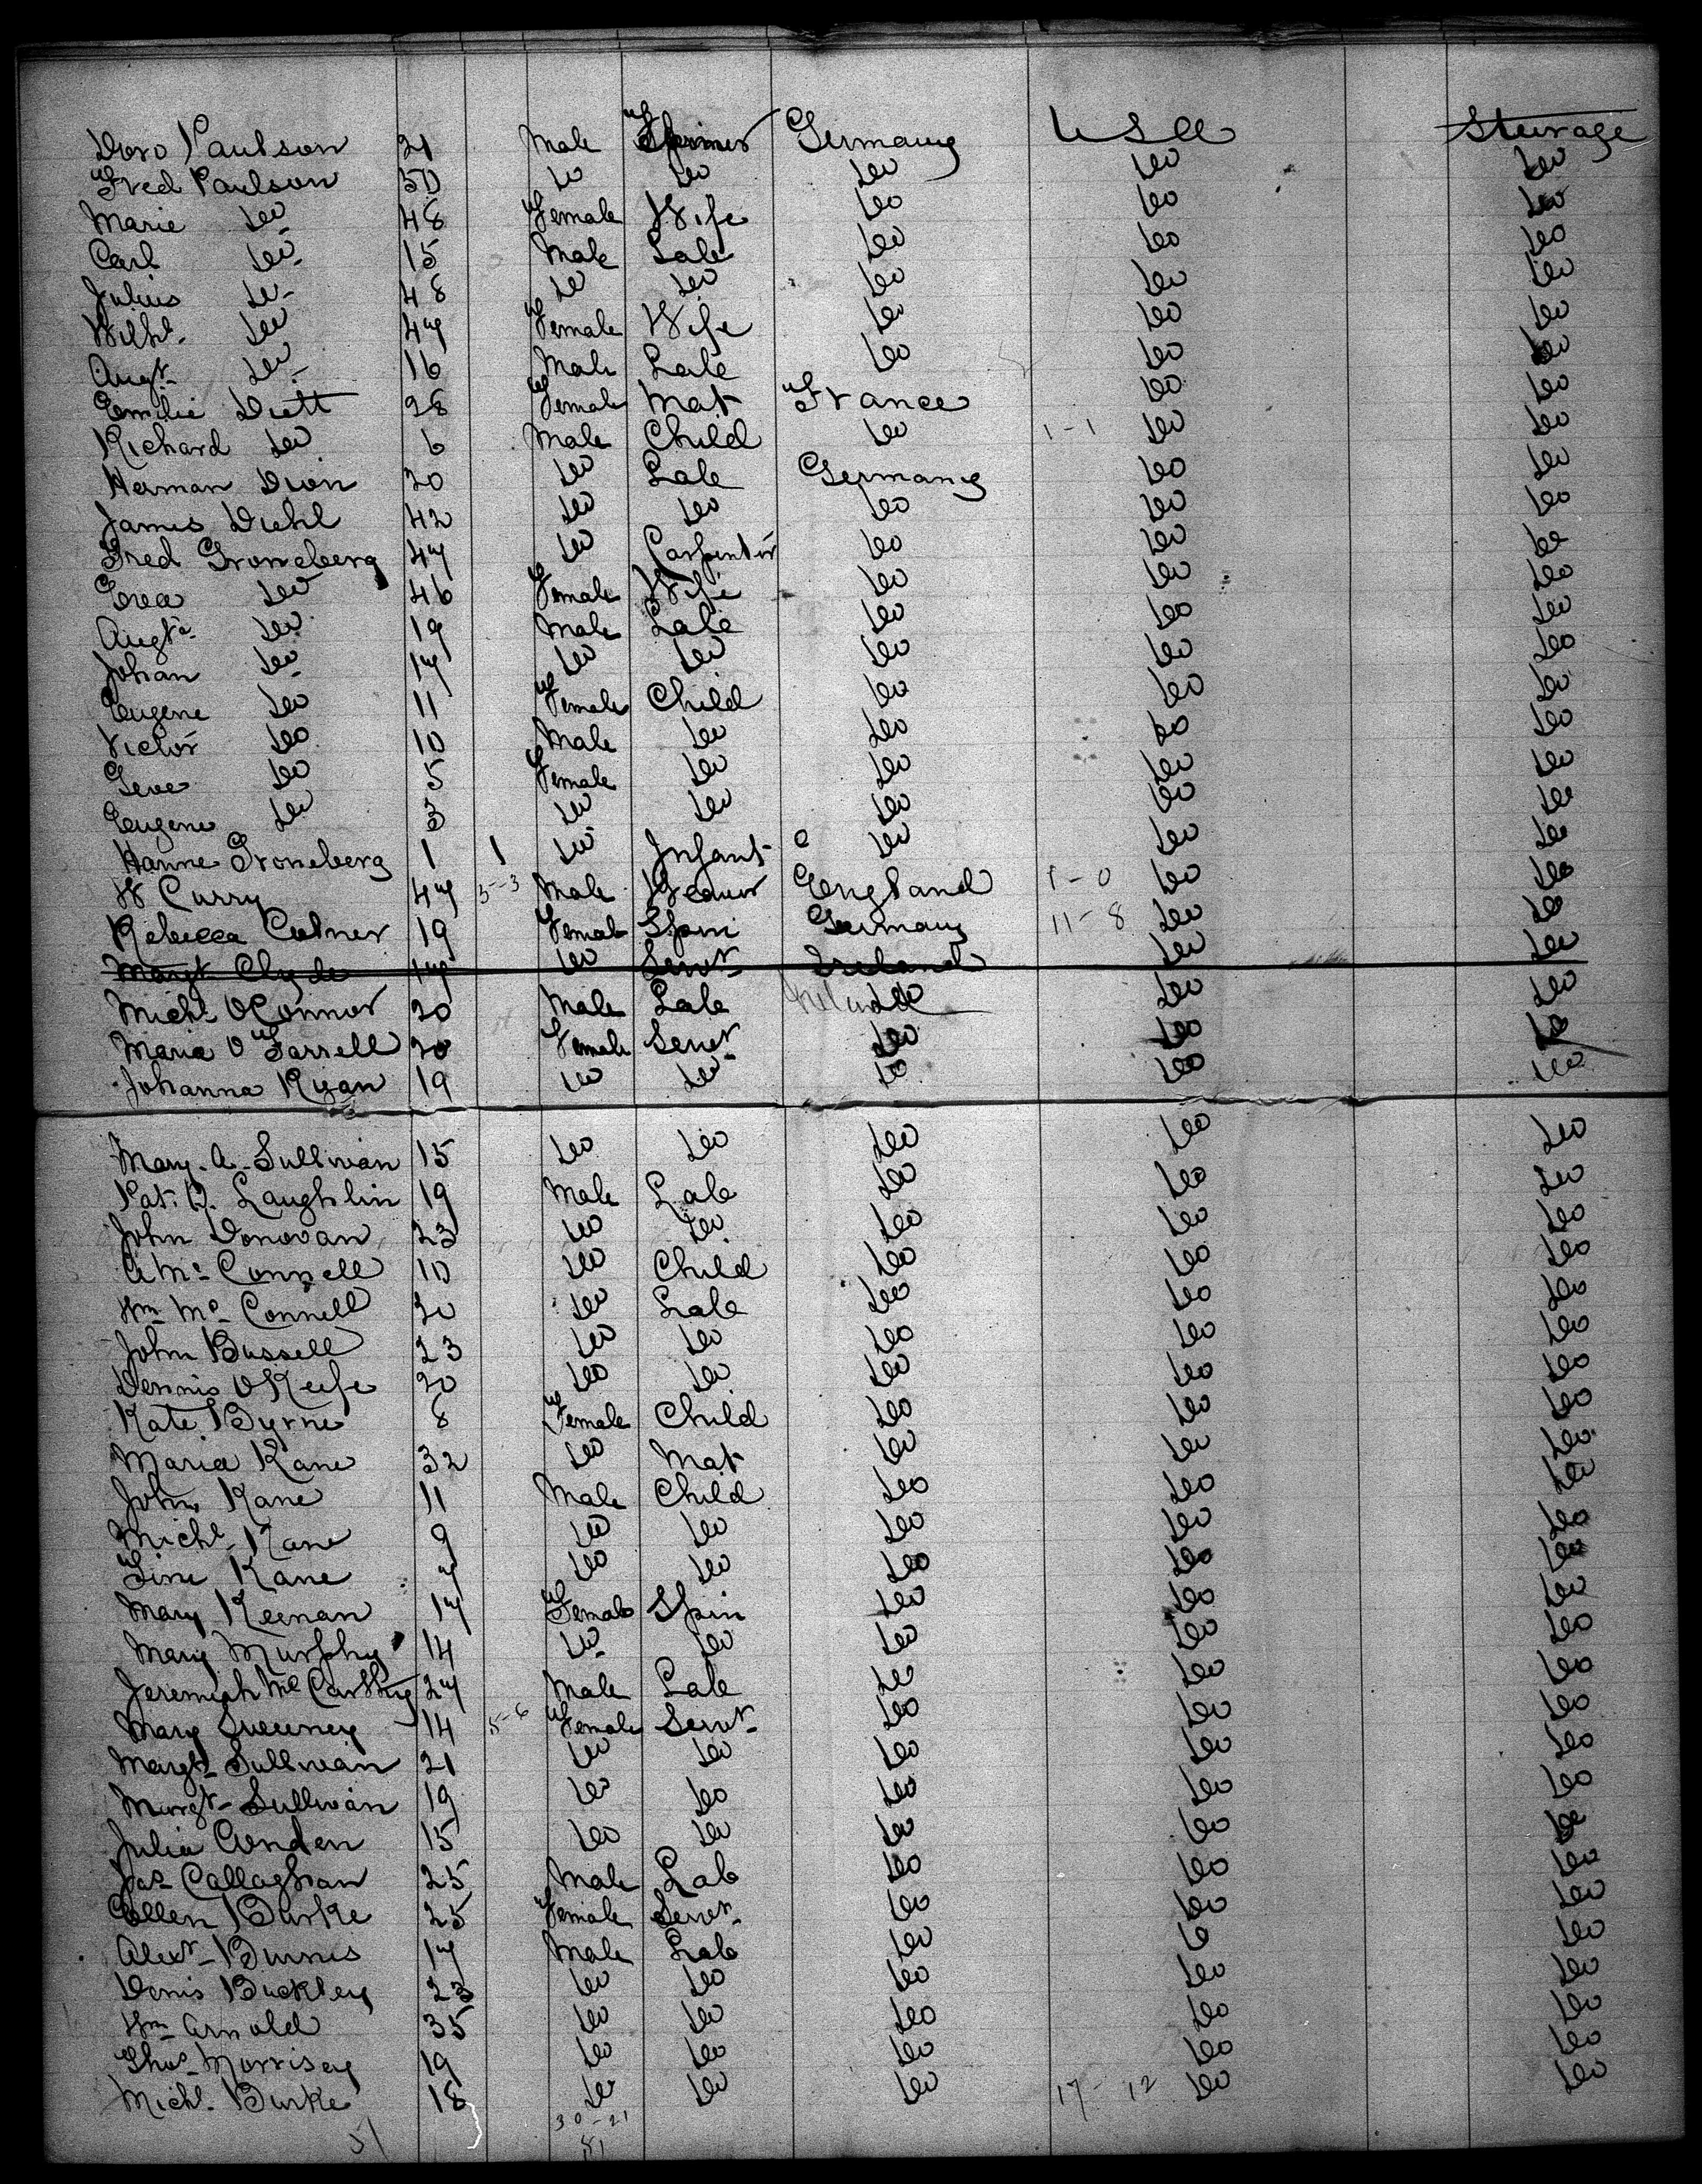 Doro Paulson 21 Male Farmer Germany USA Steerage
Fred Paulson 50 Do Do Do Do Do
Marie Do 48 Female Wife Do Do Do
Carl Do 15 Male Lab Do Do Do
Julius Do 48 Do Do Do Do Do
Wilhl Do 47 Female Wife Do Do Do
Augt Do 16 Male Lab Do Do Do
Emilie Diett 28 Female Mat France Do Do
Richard Do 6 Male Child Do 1-1 Do Do
Herman Dion 20 Do Lab Germany Do Do
James Diehl 42 Do Do Do Do Do
Fred Groneberg 47 Do Carpenter Do Do Do
Eva Do 46 Female Wife Do Do Do
Augta Do 19 Male Lab Do Do Do
Johan Do 17 Do Do Do Do Do
Eugene Do 11 Female Child Do Do Do
Victor Do 10 Male Do Do Do Do
Geve Do 5 Female Do Do Do Do
Eugene Do 3 Do Do Do Do Do
Hanne Groneberg 1 1 Do Infant Do Do Do
W Curry 47 5-3 Male Weaver England 1-0 Do Do
Rebecca Colner 19 Female Spin Germany 11-8 Do Do
Margt Clyde 17 Do Servt Ireland Do Do
Michl OConnor 20 Male Lab Ireland Do Do
Maria OFarrell 20 Female Servt Do Do Do
Johanna Ryan 19 Do Do Do Do Do
Mary A Sullivan 15 Do Do Do Do Do
Pat. O. Laughlin 19 Male Lab Do Do Do
John Donovan 23 Do Do Do Do Do
A Mc Connell 10 Do Child Do Do Do
Wm Mc Connell 20 Do Lab Do Do Do
John Bussell 23 Do Do Do Do Do
Dennis OKeefe 20 Do Do Do Do Do
Kate Byrne 8 Female Child Do Do Do
Maria Kane 32 Do Mat Do Do Do
John Kane 11 Male Child Do Do Do
Michl Kane 9 Do Do Do Do Do
Kane 7 Do Do Do Do Do
Mary Keenan 17 Female Spin Do Do Do
Mary Murphy 14 Do Do Do Do Do
Jeremiah McCarthy 27 Male Lab Do Do Do
Mary Sweeney 14 5-6 Female Servt Do Do Do
Margt Sullivan 21 Do Do Do Do Do
Margt Sullivan 19 Do Do Do Do Do
Julia Conden 15 Do Do Do Do Do
Jas Callaghan 25 Male Lab Do Do Do
Ellen Burke 25 Female Servt Do Do Do
Alexr Burns 17 Male Lab Do Do Do
Denis Buckley 23 Do Do Do Do Do
Wm Arnold 35 Do Do Do Do Do
Thos Morrisey 19 Do Do Do Do Do
Michl Burke 18 Do Do Do 17-12 Do Do
51 30-21
51